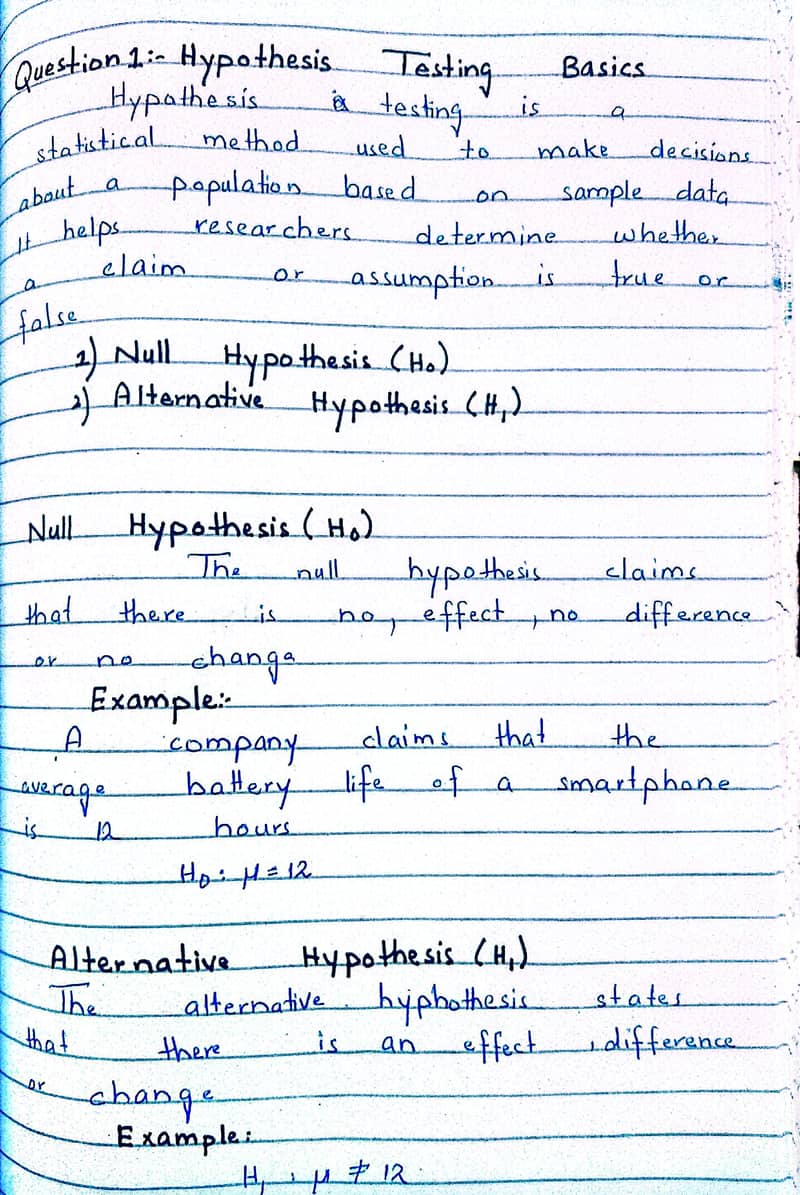 Question 1:- Hypothesis Testing Basics
Hypothesis testing is a
statistical method used to make decisions
about a population based on sample data
It helps researchers determine whether
a claim or assumption is true or
false
1) Null Hypothesis (H₀)
2) Alternative Hypothesis (H₁)
Null Hypothesis (H₀)
The null hypothesis claims
that there is no, effect, no difference
or no change
Example:-
A company claims that the
average battery life of a smartphone
is 12 hours
H₀: μ = 12
Alternative Hypothesis (H₁)
The alternative hyphothesis states
that there is an effect, difference
or change
Example:
H₁: μ ≠ 12